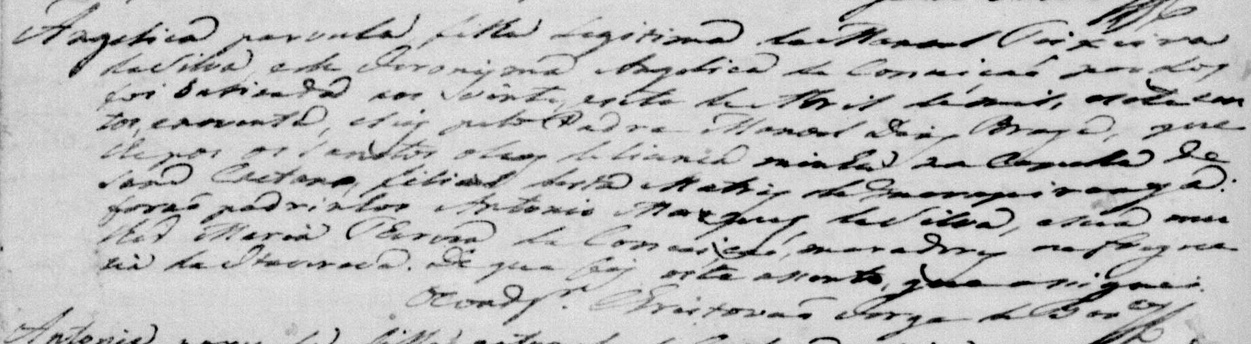 Angelica parvula filha legitima de Manoel Teixeira
da Silva e de Jeronyma Angelica da Conceicaõ pardos
foi batizada aos vinte, e sete de Abril de mil, e sete cen
tos, e noventa, e seis pelo Padre Manoel Braga, que
lhe pos os Santos oleos de licença minha na Capella de
Saõ Caetano, filial desta Matriz de Guarapiranga.
foraõ padrinhos Antonio Marques da Silva, e sua mu
lher Maria da Conceiçaõ, moradores na fregue
zia da Itaverava. De que fiz este assento, que assignei.
O Coadjor. Christovaõ Jorge de
Antonio filho